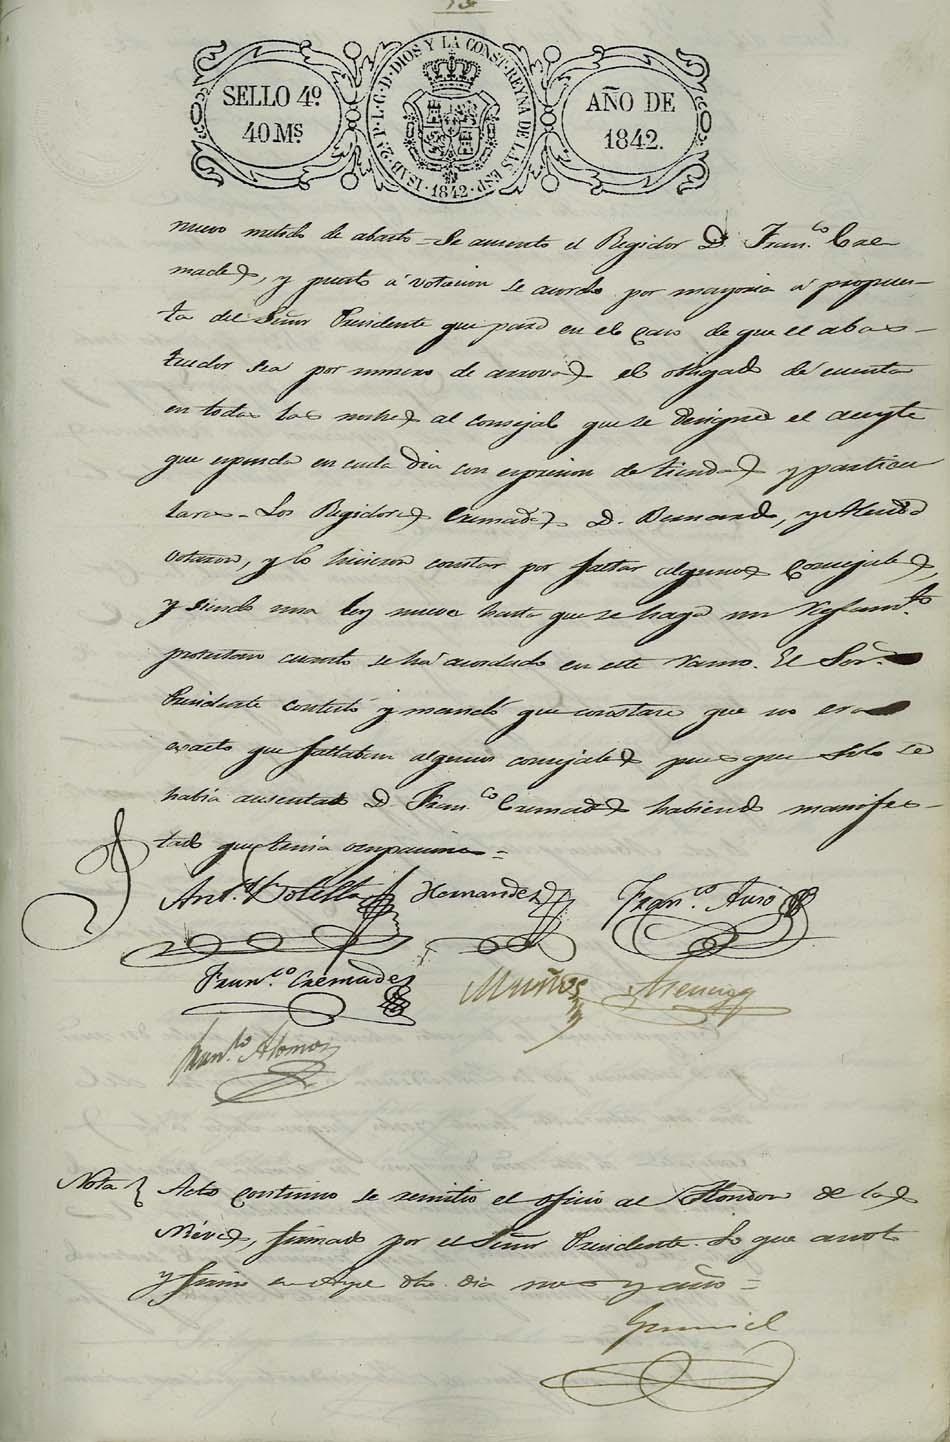 SELLO 4º
40 Ms.
ISAB. 2ª P. L. G. D. DIOS Y LA CONST. REYNA DE LAS ESP. 1842
AÑO DE
1842.
nuevo metodo de abasto = Se ausento el Regidor D. Fran.co Cre-
mades, y puesto á votacion se acordo por mayoria á propues-
ta del Señor Presidente que para en el caso de que el abas-
tecedor sea por numero de arrovas el obligado dé cuenta
en todas las noches al consejal que se designe el aceyte
que espenda en cada dia con espresion de tiendas y particu
lares = Los Regidores Cremades D. Bernardo, y
votaron, y lo hicieron constar por faltar algunos Consejales,
y siendo una ley nueva hasta que se haga un Reglam.to
protestan cuanto se há acordado en este ramo. El Sor.
Presidente contestó y mandó que constase que no era
exacto que faltaban algunos consejales pues que solo se
habia ausentado D. Fran.co Cremades habiendo manifes-
tado que tenia ocupaciones =
Ant.o Botella Hernandez Fran.co Auso
Fran.co Cremades Muños Asencio
Fran.co Alonso
Nota Acto continuo se remitio el oficio al Hondon de las
Nieves, firmado por el Señor Presidente. Lo que anoto
y firmo en Aspe dho. dia mes y año =